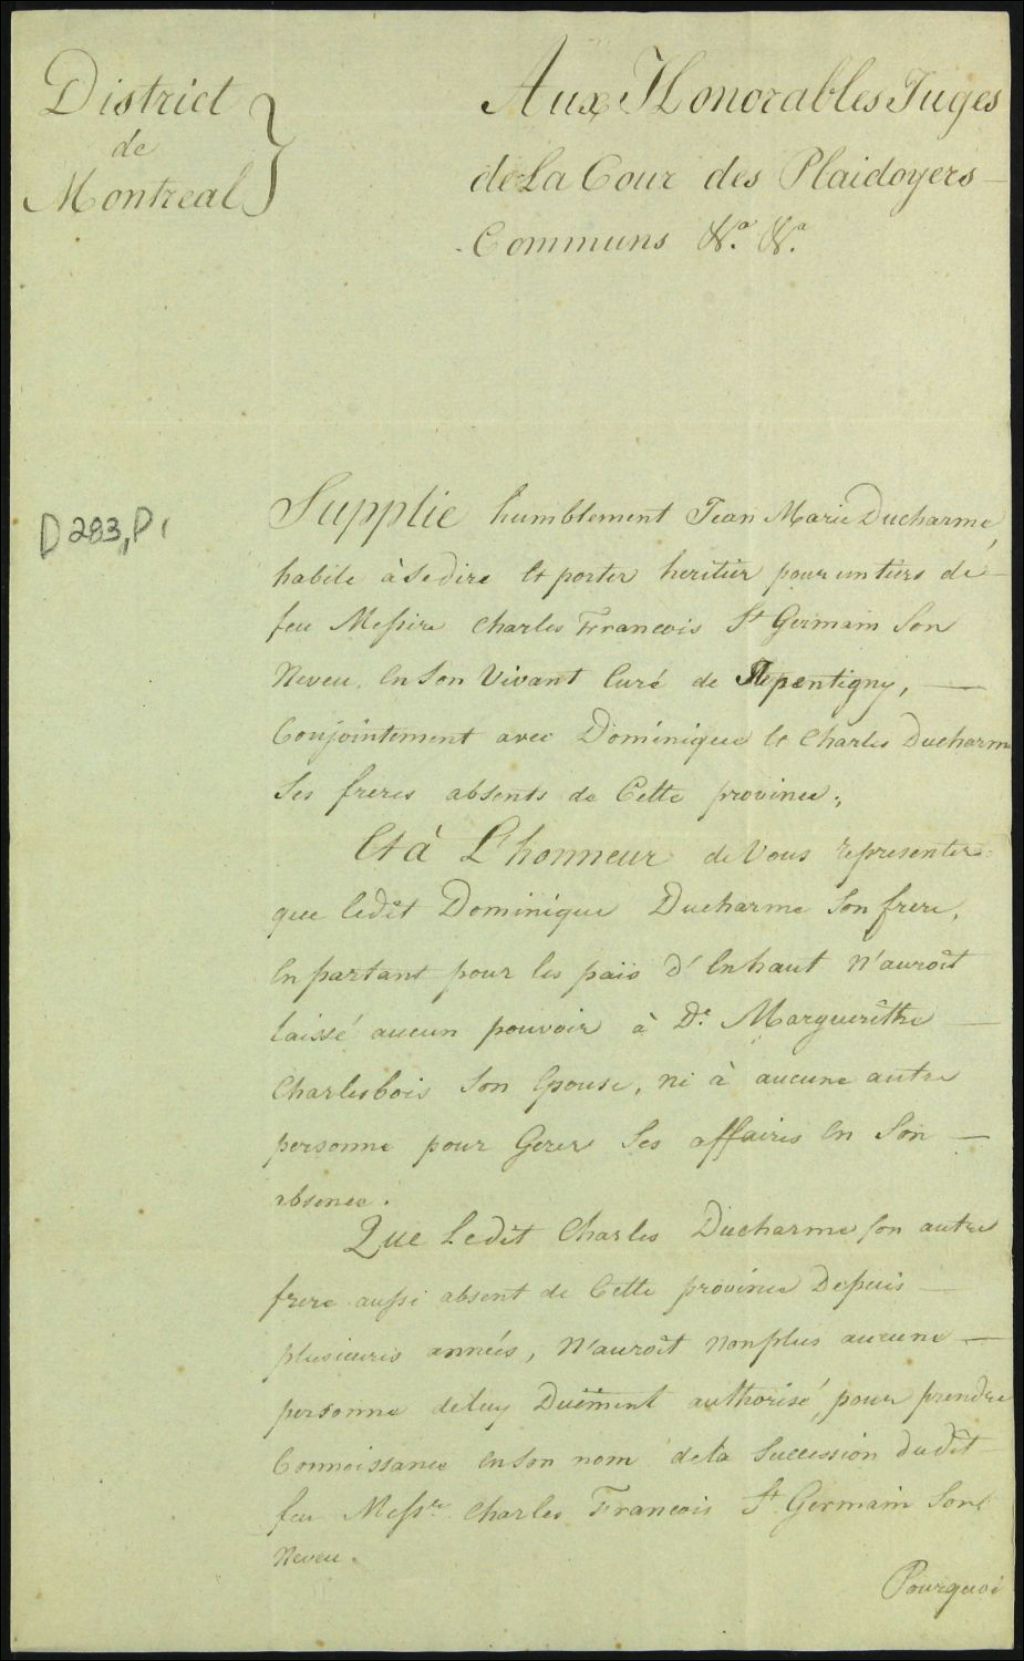 District
de
Montreal
Aux Honorables Juges
de La Cour des Plaidoyers
Communs &a. &a.
D283,P1
Supplie humblement Jean Marie Ducharme,
habile à Se dire Et porter heritier pour un tiers de
feu Messire Charles Francois St Germain Son
Neveu, En Son Vivant Curé de Repentigny,
Conjointement avec Dominique Et Charles Ducharme
Ses freres absents de Cette province;
Et à L'honneur de Vous representer
que ledit Dominique Ducharme Son frere,
En partant pour les païs d'Enhaut N'auroit
laissé aucun pouvoir à De. Marguerithe
Charlesbois Son Epouse, ni à aucune autre
personne pour Gerer Ses affaires En Son
absence.
Que Ledit Charles Ducharme son autre
frere aussi absent de Cette province Depuis
plusieurs années, N'auroit Nonplus aucune
personne de luy Duëment authorisé, pour prendre
Connoissance En Son nom de la Succession dudit
feu Messre Charles Francois St Germain Son
Neveu.
Pourquoi